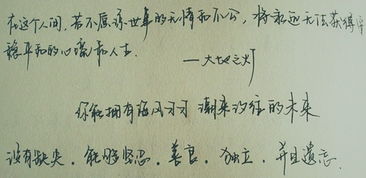 在这个人间，若不原谅世事的无情和不公，将永远无法获得
稳平和的心境和人生。
——大地之灯
你能拥有海风习习 潮来汐往的未来
没有缺失，能够坚忍，善良，独立，并且遗忘.